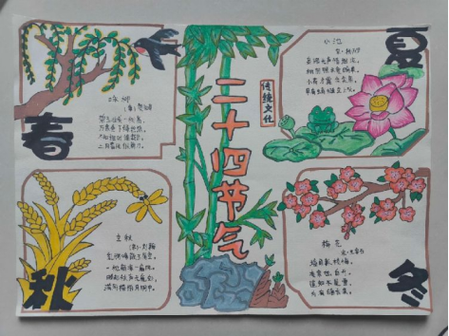 二十四节气
传统文化
春
咏柳
碧玉妆成一树高,
万条垂下绿丝绦。
不知细叶谁裁出,
二月春风似剪刀。
夏
小池
泉眼无声惜细流,
树阴照水爱晴柔。
小荷才露尖尖角,
早有蜻蜓立上头。
秋
立秋
(宋)刘翰
乳鸦啼散玉屏空,
一枕新凉一扇风。
睡起秋声无觅处,
满阶梧桐月明中。
冬
梅花
墙角数枝梅,
凌寒独自开。
遥知不是雪,
为有暗香来。